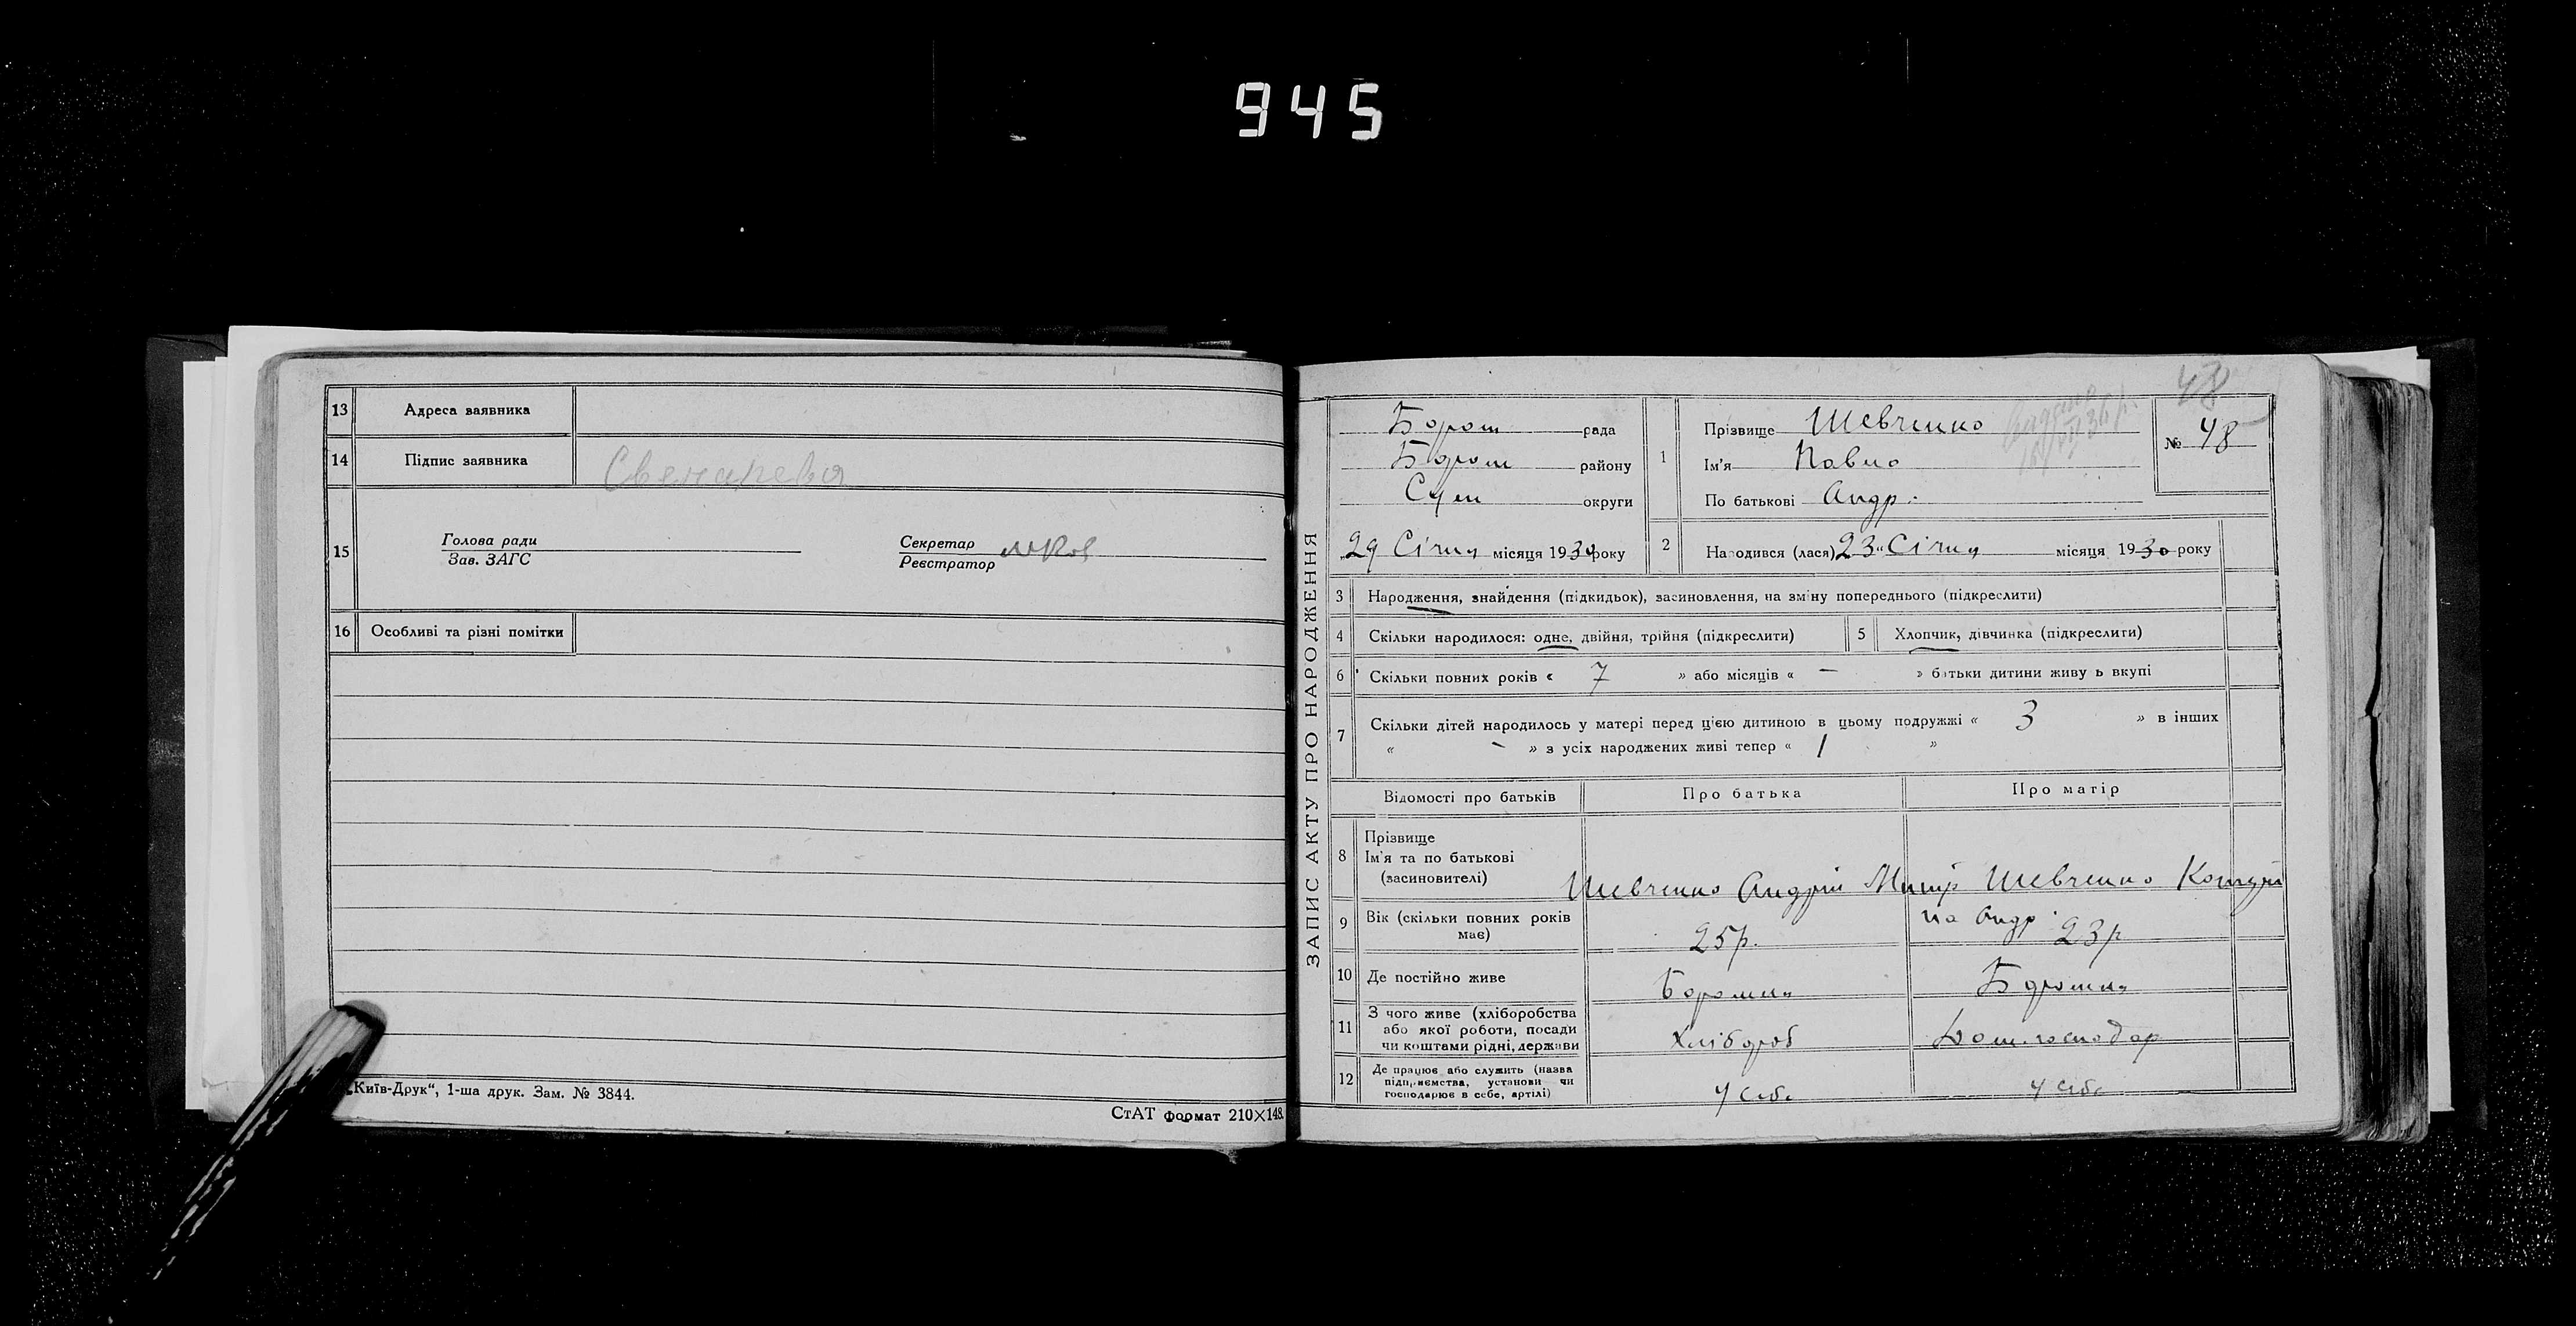 945
13 Адреса заявника
14 Підпис заявника
15 Голова ради
Зав. ЗАГС
Секретар
Реєстратор
16 Особливі та різні помітки
„Київ-Друк“, 1-ша друк. Зам. № 3844.
СтАТ формат 210×148.
ЗАПИС АКТУ ПРО НАРОДЖЕННЯ
48
Бором рада
Бором району
Сум округи
29 Січня місяця 1930 року
1 Прізвище Шевченко
Ім'я Павло
По батькові Андр.
№ 48
2 Народився (лася) 23 „ Січня місяця 1930 року
3 Народження, знайдення (підкидьок), засиновлення, на зміну попереднього (підкреслити)
4 Скільки народилося: одне, двійня, трійня (підкреслити) 5 Хлопчик, дівчинка (підкреслити)
6 Скільки повних років « 7 » або місяців « — » батьки дитини живуть вкупі
7 Скільки дітей народилось у матері перед цією дитиною в цьому подружжі « 3 » в інших
« - » з усіх народжених живі тепер « 1 »
Відомості про батьків Про батька Про матір
8 Прізвище
Ім'я та по батькові
(засиновителі)
Шевченко Андрій Шевченко
на Андр
9 Вік (скільки повних років має) 25 р. 23 р
10 Де постійно живе Боромня Боромня
11 З чого живе (хліборобства або якої роботи, посади чи коштами рідні, держави Хлібороб Дом.господар
12 Де працює або служить (назва підприємства, установи чи господарює в себе, артілі) у себе у себе